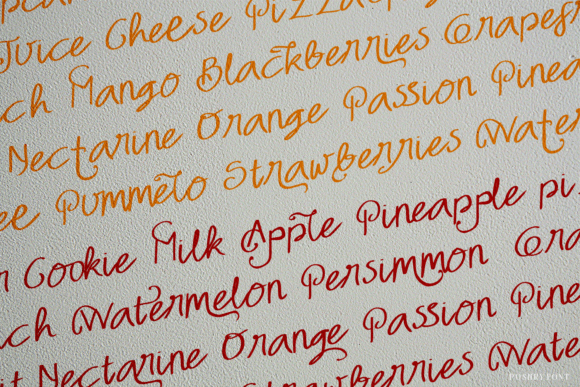 Juice Cheese Pizza
ch Mango Blackberries Grapef
Nectarine Orange Passion Pinea
ee Pummelo Strawberries Water
r Cookie Milk Apple Pineapple pi
ch Watermelon Persimmon Gra
it Nectarine Orange Passion Pine
Strawberries Wate